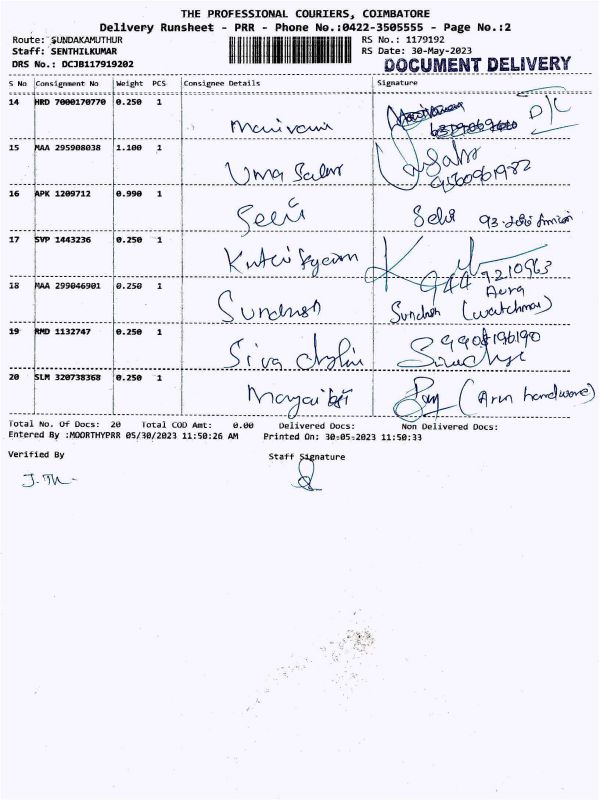 THE PROFESSIONAL COURIERS, COIMBATORE
Delivery Runsheet - PRR - Phone No.:0422-3505555 - Page No.:2
Route: SUNDAKAMUTHUR RS No.: 1179192
Staff: SENTHILKUMAR RS Date: 30-May-2023
DRS No.: DCJB117919202 DOCUMENT DELIVERY
S No Consignment No Weight PCS Consignee Details Signature
14 HRD 7000170770 0.250 1 D/C
15 MAA 295908038 1.100 1 9560961982
16 APK 1209712 0.990 1 Selvi
17 SVP 1443236 0.250 1
18 MAA 299046901 0.250 1 (watchman)
19 RMD 1132747 0.250 1 Siva
20 SLM 320738368 0.250 1 (Arun hardware)
Total No. Of Docs: 20 Total COD Amt: 0.00 Delivered Docs: Non Delivered Docs:
Entered By :MOORTHYPRR 05/30/2023 11:50:26 AM Printed On: 30-05-2023 11:50:33
Verified By Staff Signature